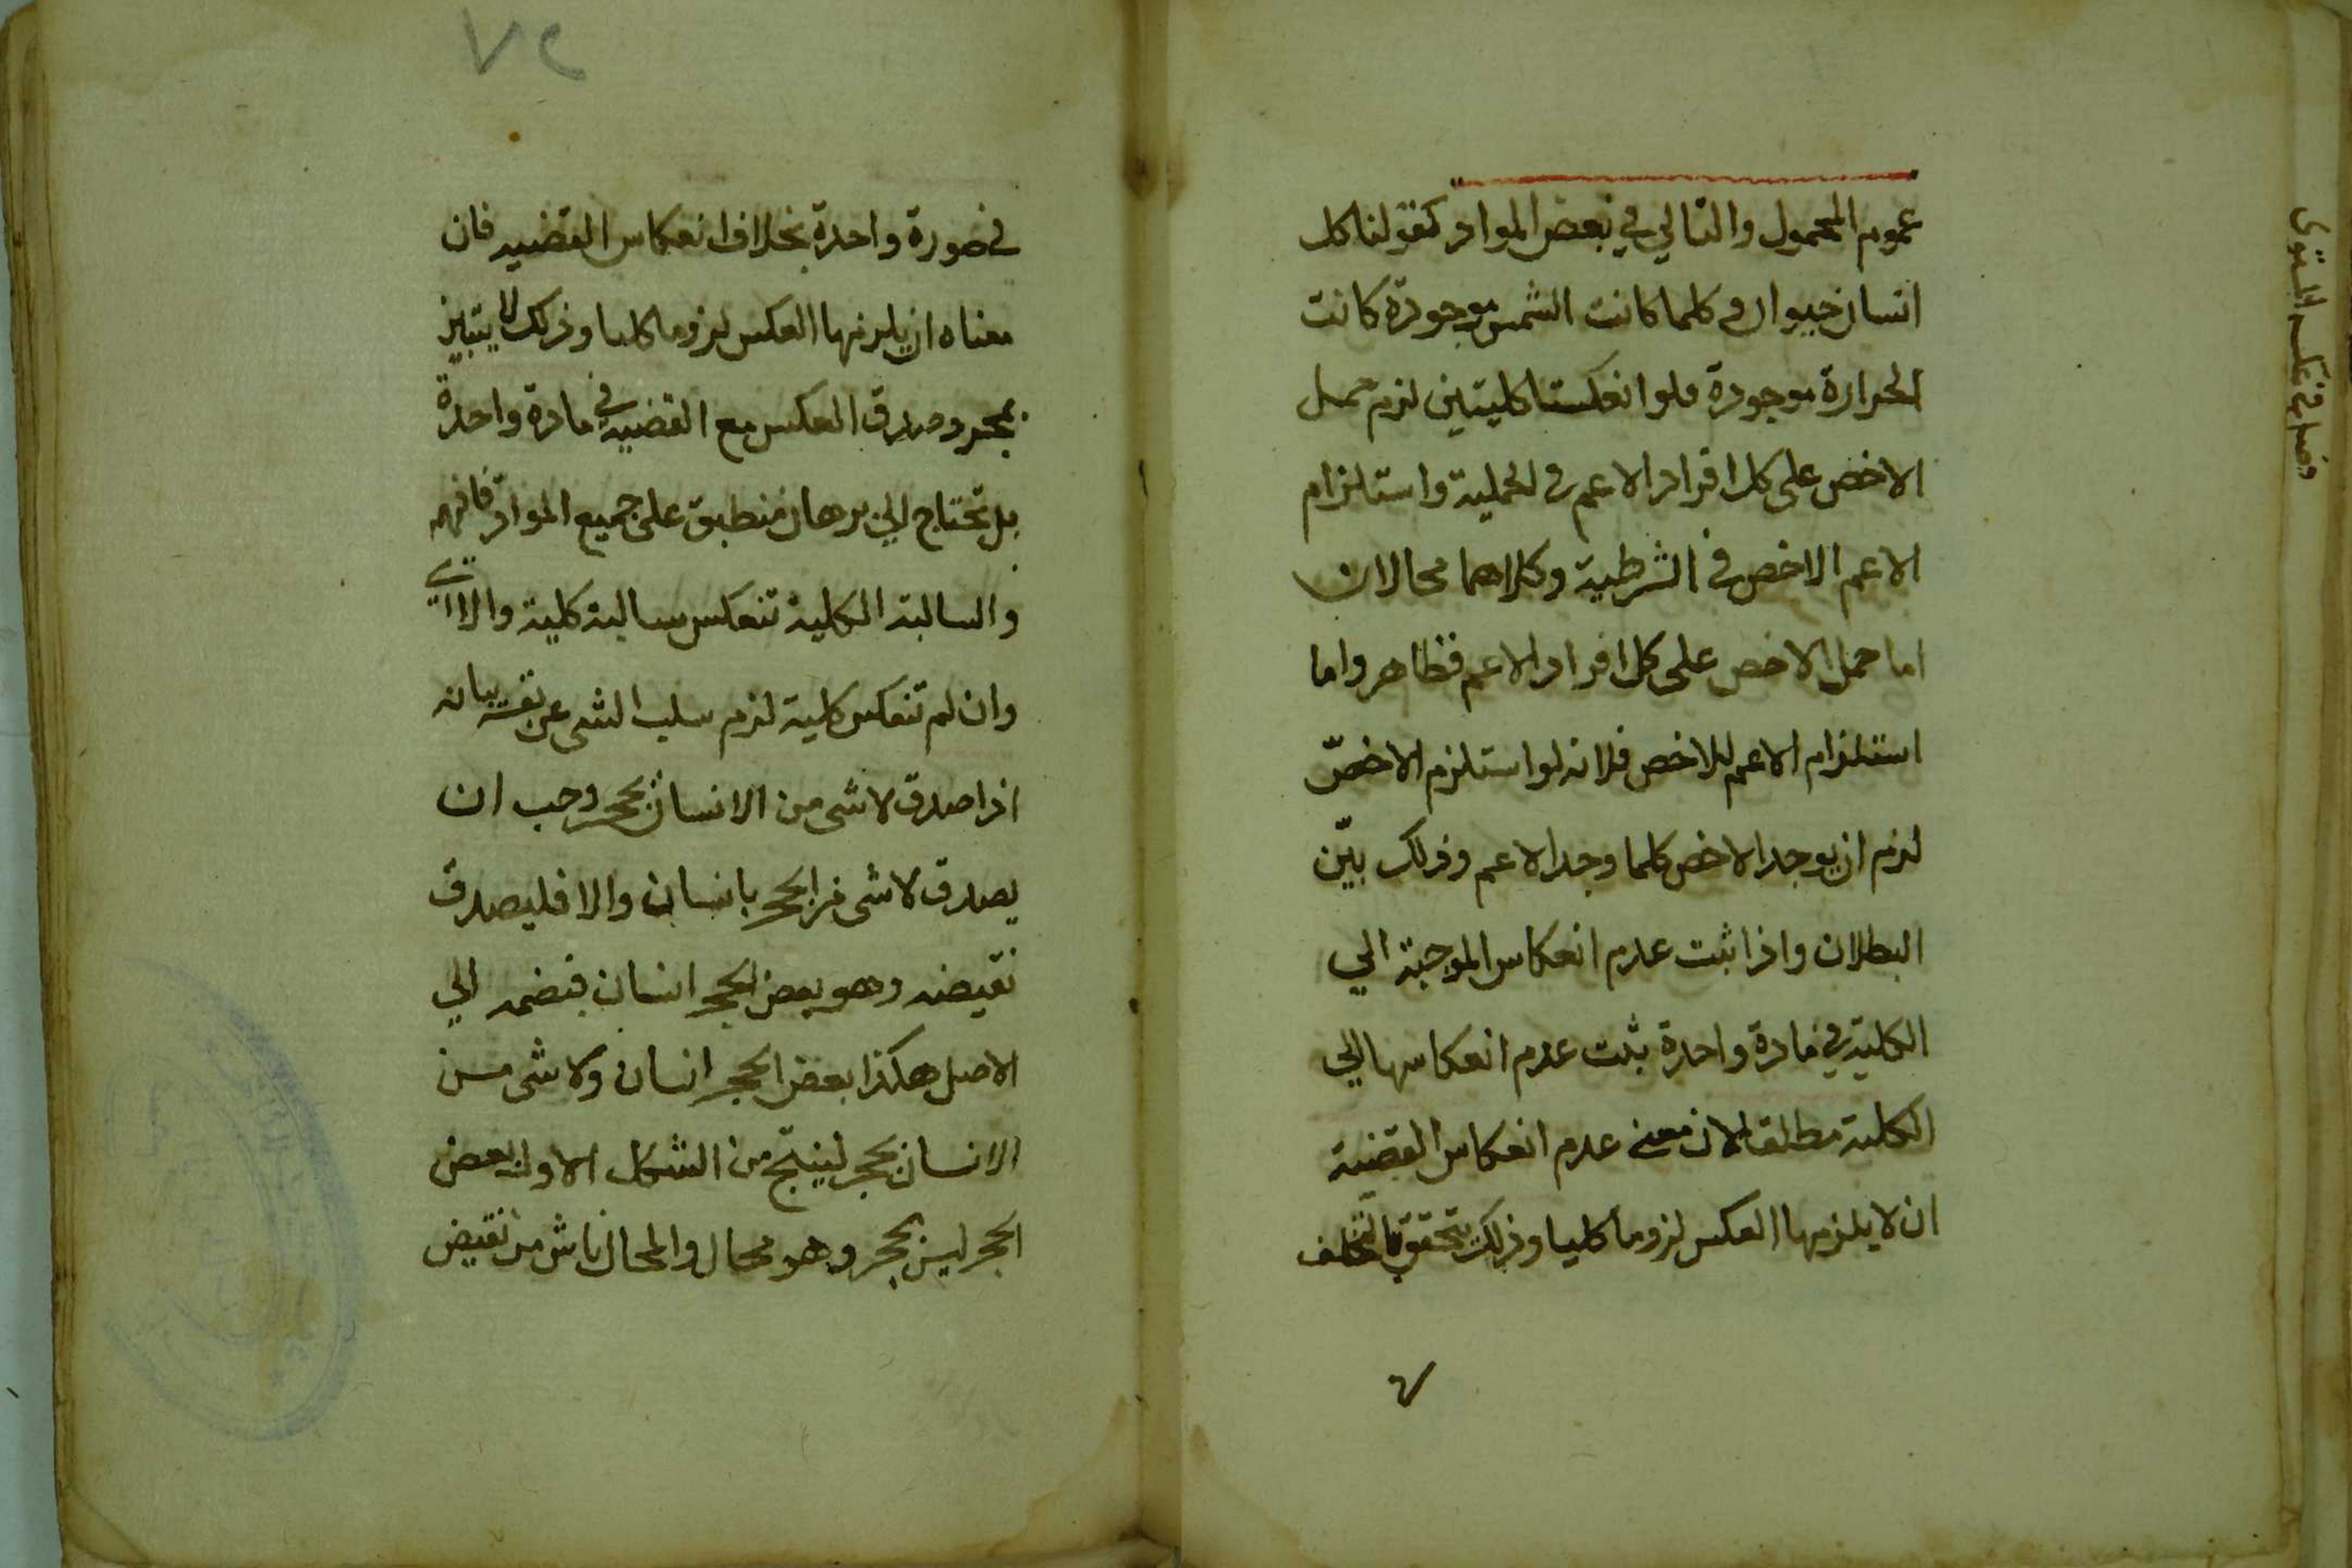 عموم المحمول والتالي في بعض المواد كقولنا كل
انسان حيوان وكلما كانت الشمس موجودة كانت
الحرارة موجودة فلو انعكستا كليتين لزم حمل
الاخص على كل افراد الاعم في الحملية واستلزام
الاعم الاخص في الشرطية وكلاهما محالان
اما حمل الاخص على كل افراد الاعم فظاهر واما
استلزام الاعم للاخص فلانه لو استلزم الاخصّ
لزم ان يوجد الاخص كلما وجد الاعم وذلك بيّن
البطلان واذا ثبت عدم انعكاس الموجبة الي
الكلية في مادة واحدة ثبت عدم انعكاسها الي
الكلية مطلقا لان معني عدم انعكاس القضية
ان لا يلزمها العكس لزوما كليا وذلك يتحقق بالتخلف
فصل في عكس المستوى
٧٢
في صورة واحدة بخلاف انعكاس القضيه فان
معناه ان يلزمها العكس لزوما كليا وذلك لا يتبين
بمجرد صدق العكس مع القضية في مادة واحدة
بل تحتاج الي برهان منطبق على جميع المواد فافهم
والسالبة الكلية تنعكس سالبة كلية والا اي
وان لم تنعكس كلية لزم سلب الشي عن نفسه بيانه
اذا صدق لا شي من الانسان بحجر وجب ان
يصدق لا شي من الحجر بانسان والا فليصدق
نقيضه وهو بعض الحجر انسان فنضمه الي
الاصل هكذا بعض الحجر انسان ولا شي من
الانسان بحجر لينتج من الشكل الاول بعض
الحجر ليس بحجر وهو محال والمحال ناش من نقيض